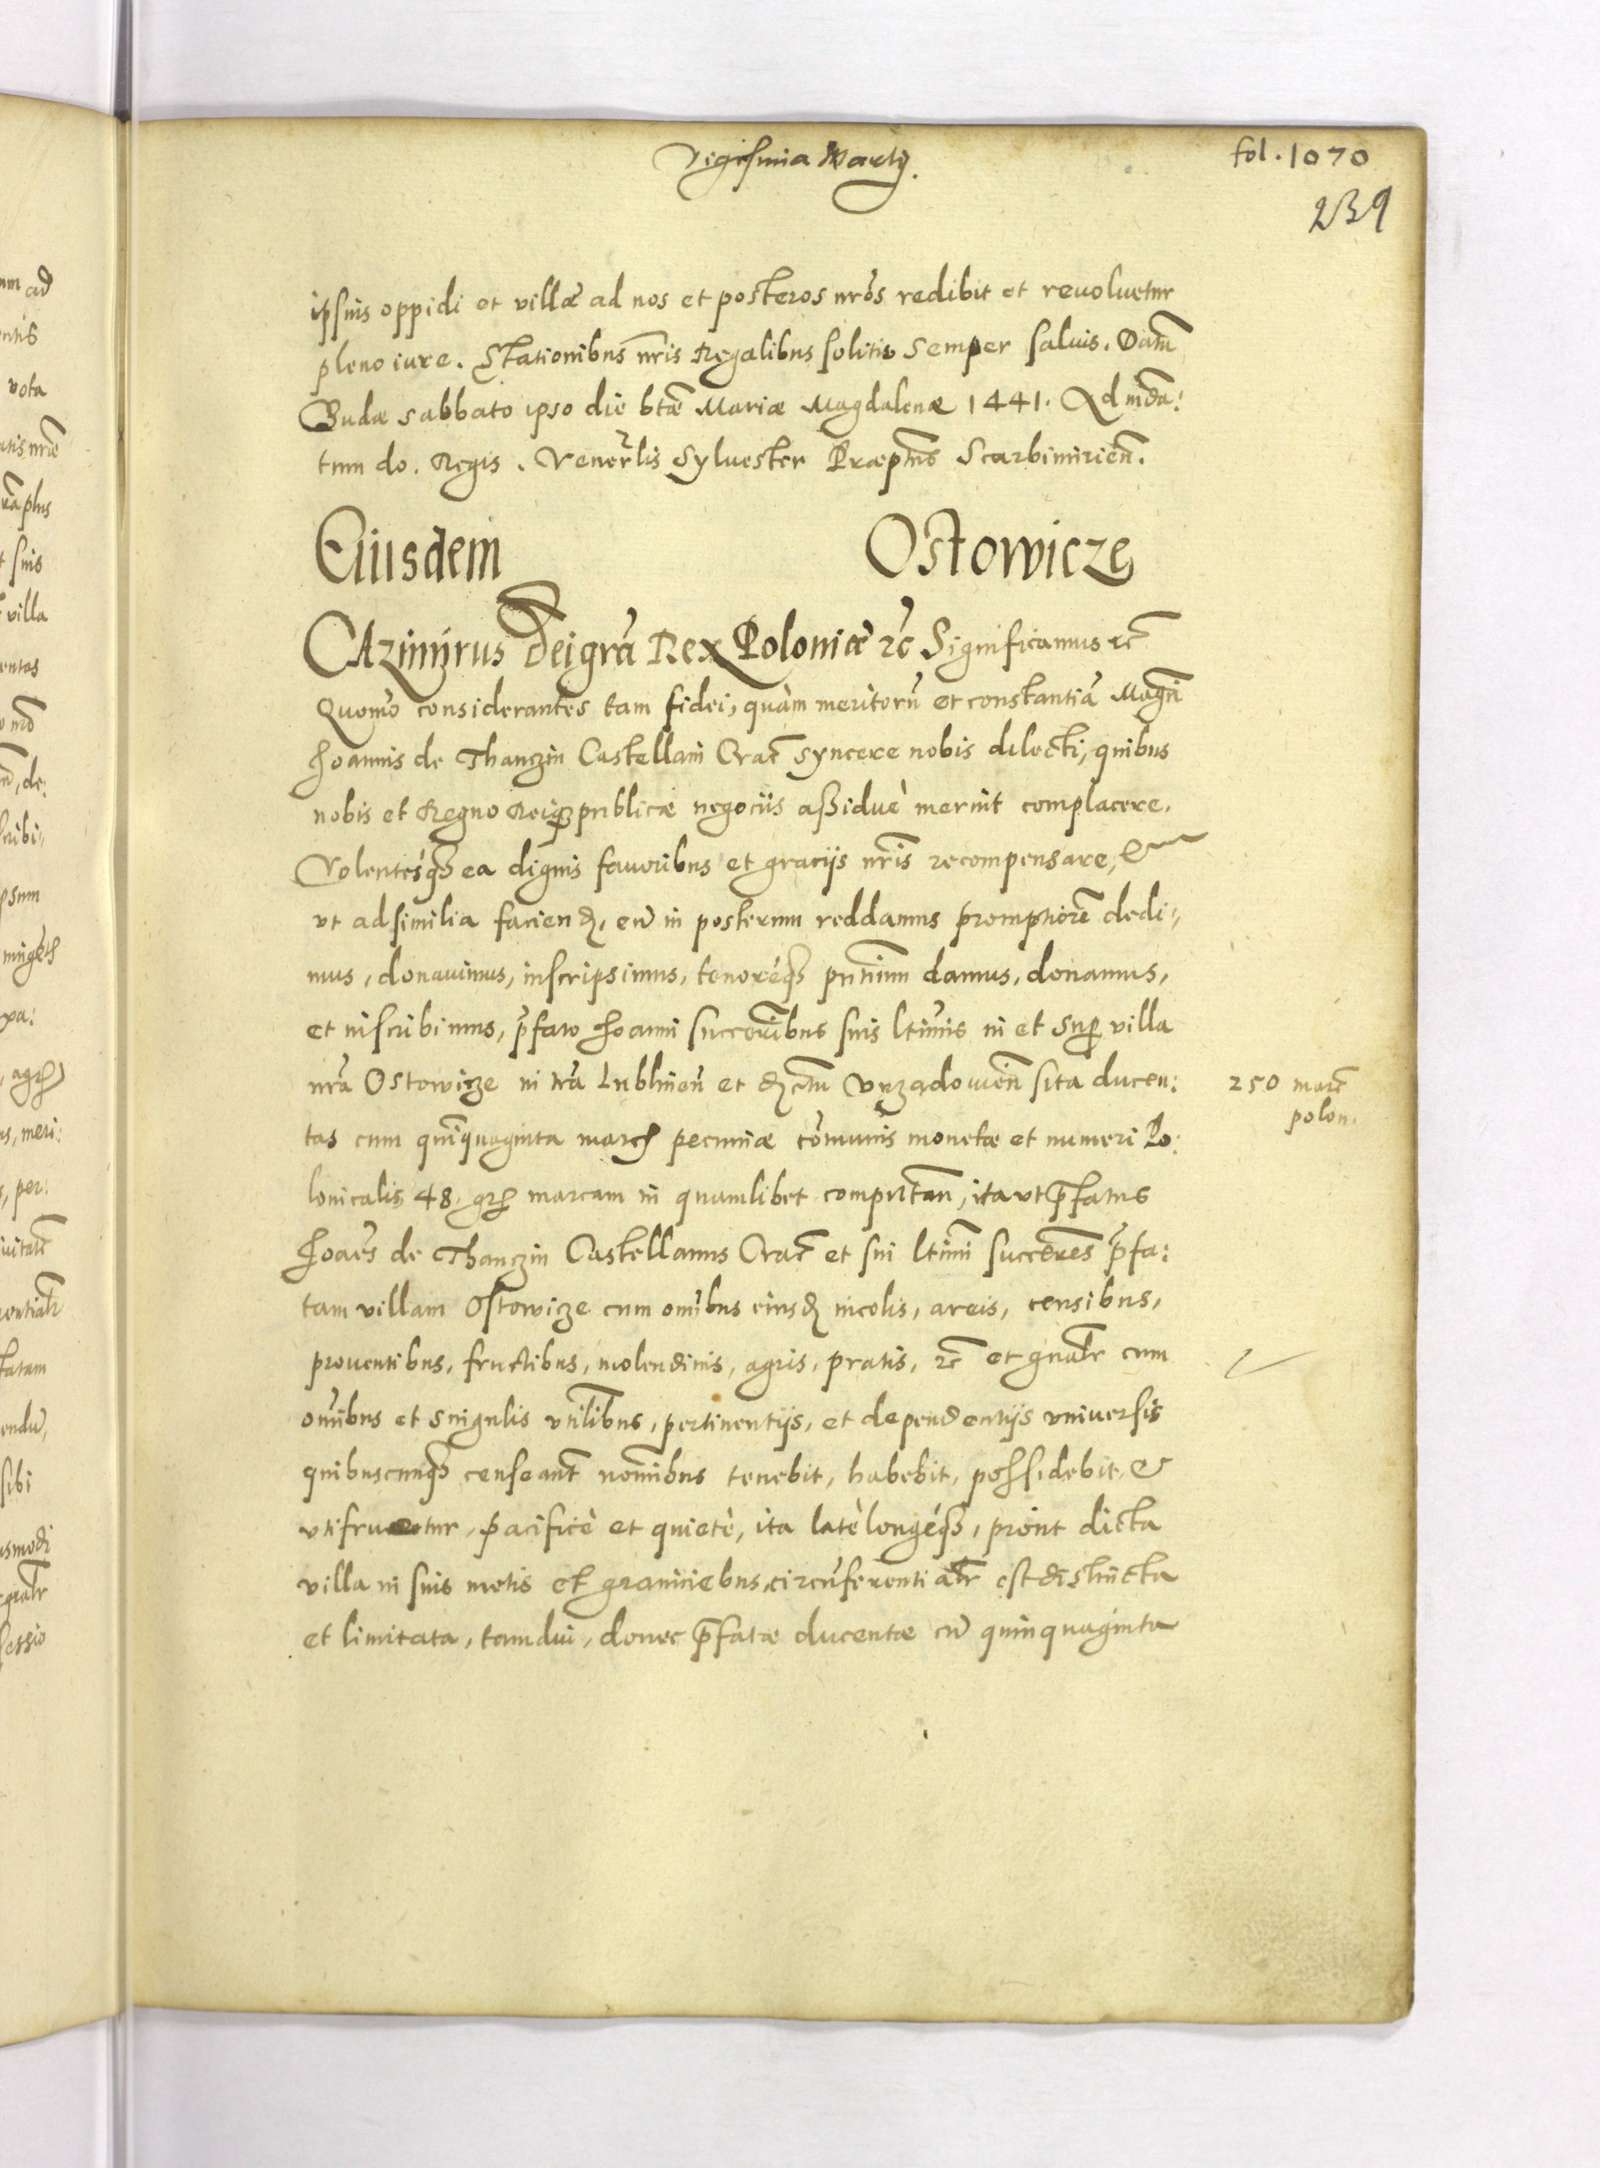 Vigesima Martij.
fol. 1070
239
ipsius oppidi et villæ ad nos et posteros nrõs redibit et revoluetur
pleno iure. Stationibus nr̃is Regalibus solitis semper saluis. Datum
Budæ sabbato ipso die btæ Mariæ Magdalenæ 1441. Ad mãda:
tum do. Regis. Vener̃lis Syluester Præptus Scarbimirien̄.
Eiusdem Ostowicze
CAzimirus Dei grã Rex Poloniæ &c Significamus &c
Quomo considerantes tam fidei, quàm meritorũ et constantiã Magci
Joannis de Thanczin Castellani Crac̃ syncere nobis dilecti, quibus
nobis et Regno Reiq3 publicæ negociis aßiduè meruit complacere.
Volentesq3 ea dignis favoribus et gracijs nr̃is recompensare, &
vt ad similia faciend, eũ in posterum reddamus promptiorẽ dedi:
mus, donauimus, inscripsimus, tenoreq3 pntium damus, donamus,
et inscribimus, p̃fato Joanni succerĩbus suis ltimis in et sup villa
nrã Ostowicze in trã Lublinen̄ et dictu Vrzadowien̄ sita ducen:
250 marc̃
polon.
tas cum quinquaginta march pecuniæ cõmunis monetæ et numeri Po:
lonicalis 48. gr marcam in quamlibet computan̄, ita vt p̃fatus
Joaẽs de Thanczin Castellanus Crac̃ et sui ltimi succeres p̃fa:
tam villam Ostowicze cum omĩbus eiusd incolis, areis, censibus,
prouentibus, fructibus, molendinis, agris, pratis, &c et gnãlr cum
omĩbus et singulis vtilĩbus, pertinentijs, et dependentijs vniuersis
quibuscunq3 censeant nomĩbus tenebit, habebit, possidebit, &
vtifruetur, pacificè et quietè, ita latè longéq3, prout dicta
villa in suis metis et graniciebus, circũferentialr est distincta
et limitata, tamdiu, donec p̃fatæ ducentæ cũ quinquaginta